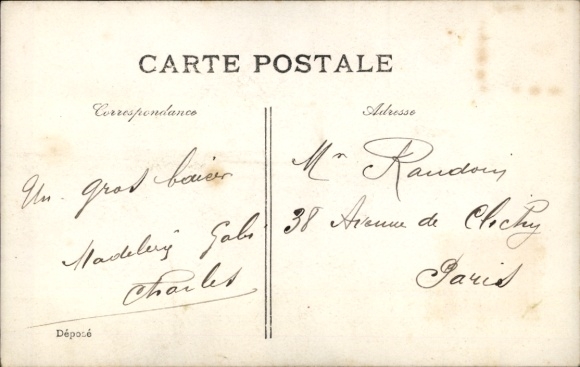 CARTE POSTALE
Correspondance
Adresse
Un gros baiser
Gabi
Charles
Mr Raudoin
38 Avenue de Clichy
Paris
Déposé